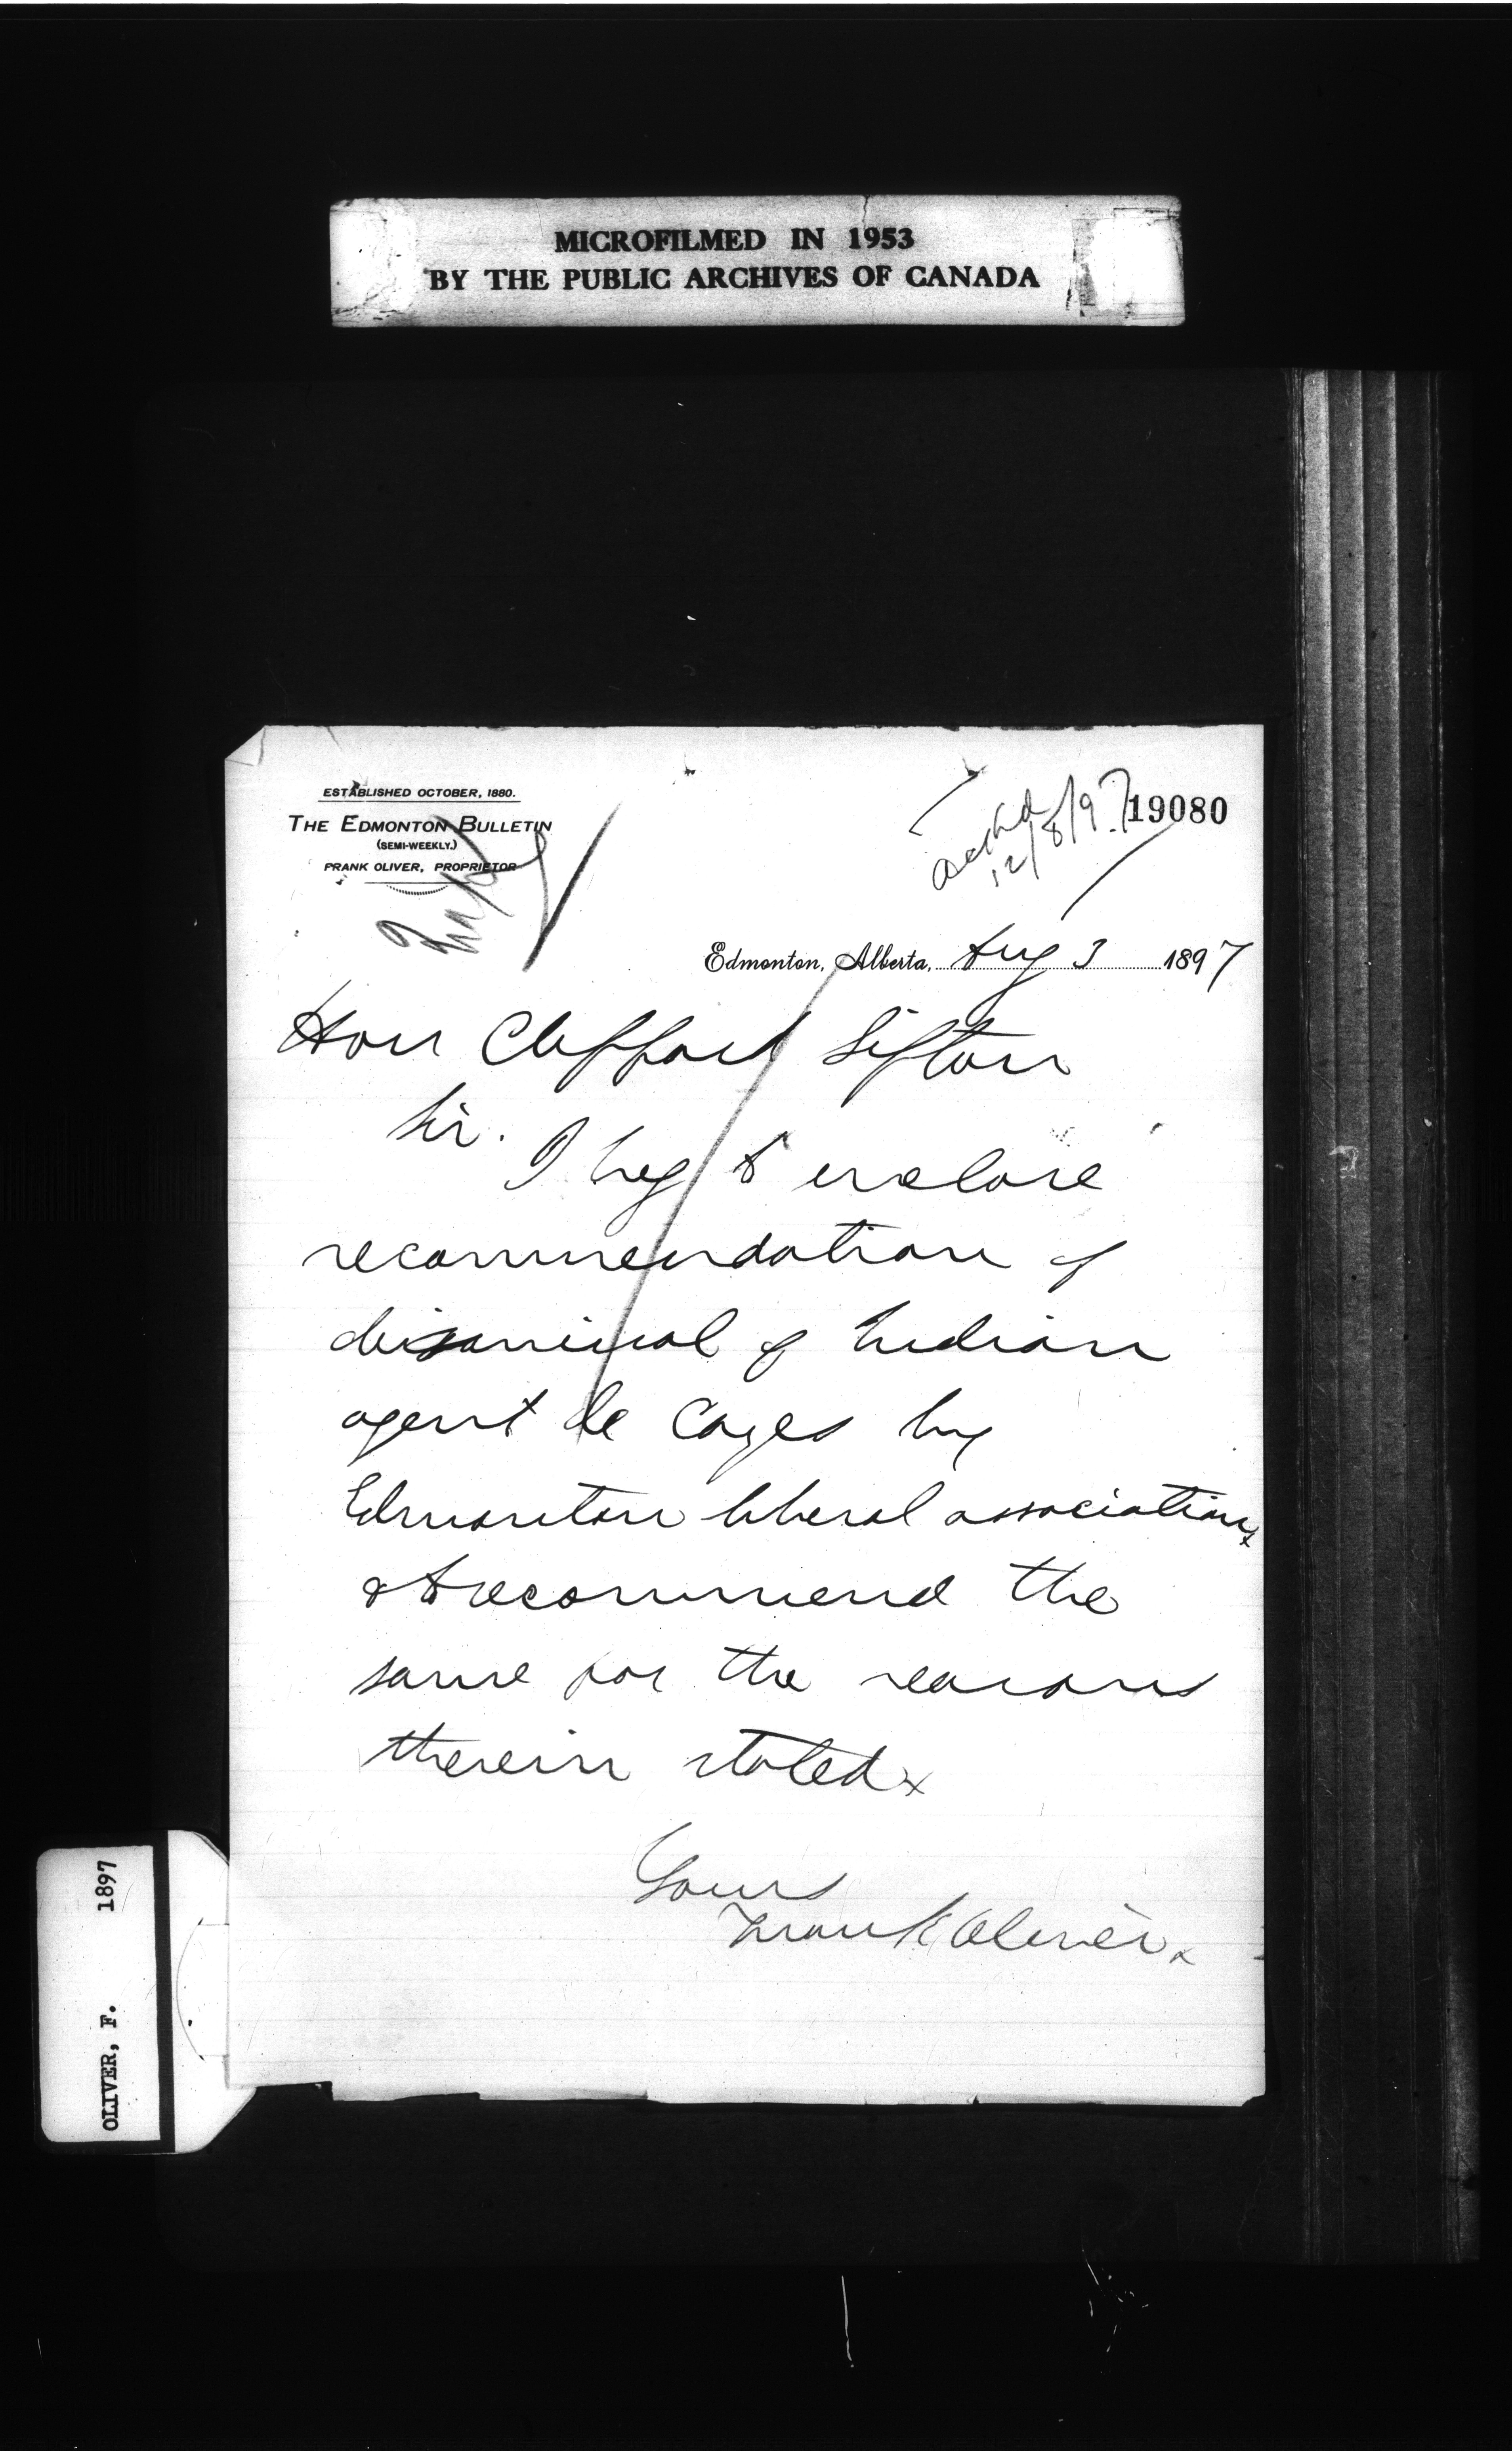 MICROFILMED IN 1953
BY THE PUBLIC ARCHIVES OF CANADA
ESTABLISHED OCTOBER, 1880.
THE EDMONTON BULLETIN
(SEMI-WEEKLY.)
FRANK OLIVER, PROPRIETOR
ackd
12/8/97
19080
Edmonton, Alberta, Aug 3 1897
Hon Clifford Sifton
Sir.
I beg to enclose
recommendation of
dismissal of Indian
agent de Cazes by
Edmonton liberal association x
& recommend the
same for the reasons
therein stated x
Yours
Frank Oliver x
OLIVER, F. 1897